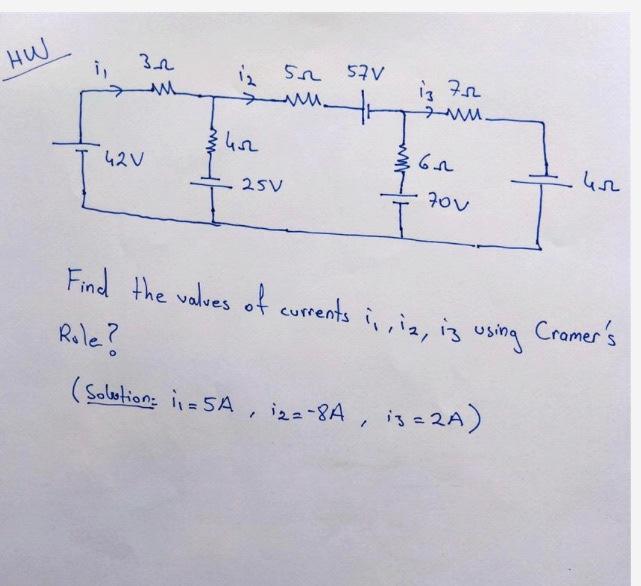 HW
i₁ 3Ω i₂ 5Ω 57V i₃ 7Ω
42V 4Ω 6Ω 4Ω
25V 70V
Find the values of currents i₁, i₂, i₃ using Cramer's
Role?
(Solution: i₁ = 5A , i₂ = -8A , i₃ = 2A)